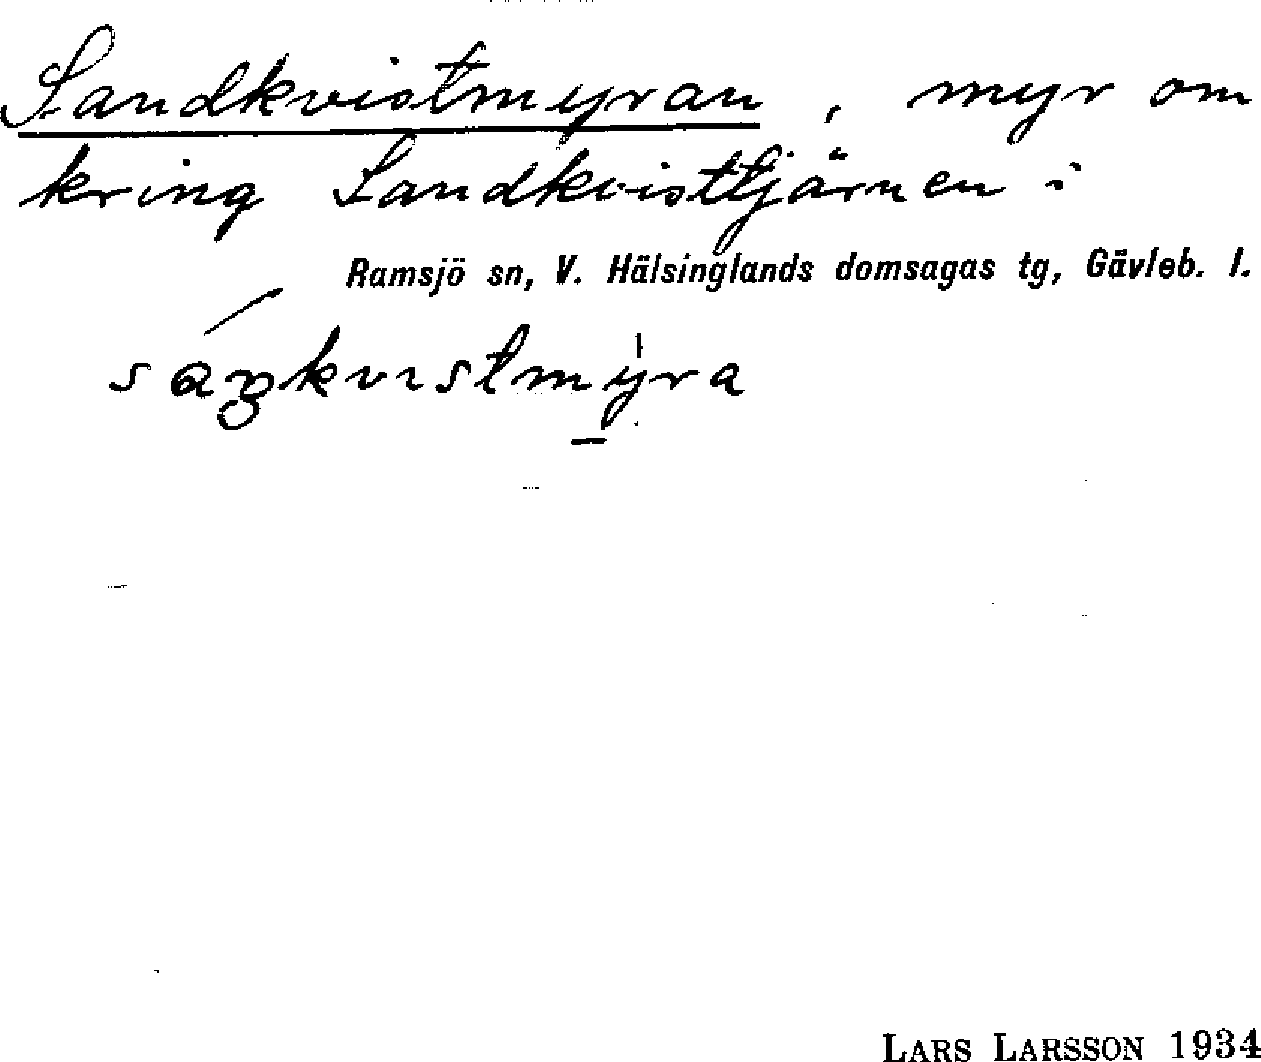 Sandkvistmyran, myr om
kring Sandkvisttjärnen i
Ramsjö sn, V. Hälsinglands domsagas tg, Gävleb. l.
LARS LARSSON 1934